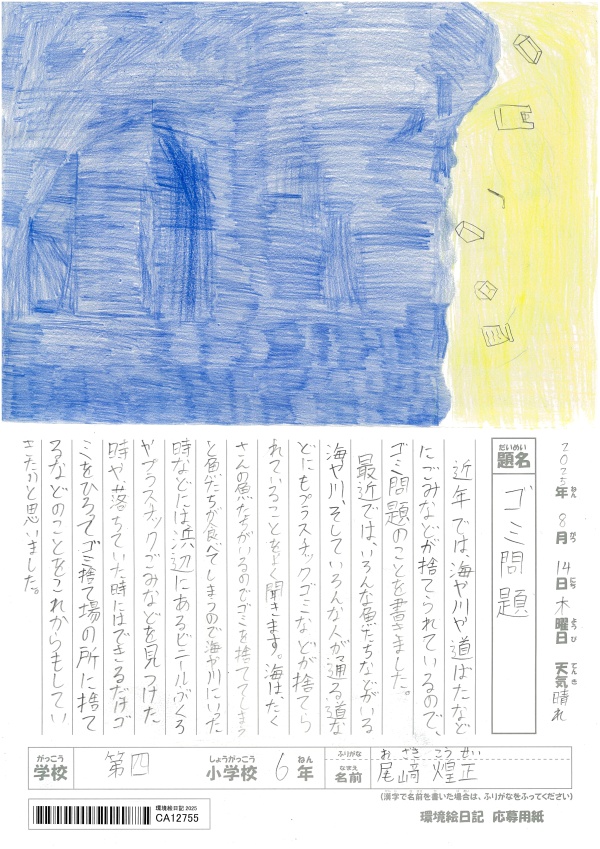 2025年 8月 14日 木曜日 天気 晴れ
ねん がつ にち ようび てんき
だいめい
題名
ゴミ問題
近年では、海や川や道ばたなど
にごみなどが捨てられているので、
ゴミ問題のことを書きました。
最近では、いろんな魚たちなどがいる
海や川、そしていろんな人が通る道な
どにもプラスチックゴミなどが捨てら
れていることをよく聞きます。海は、たく
さんの魚たちがいるのでゴミを捨ててしまう
と魚たちが食べてしまうので海や川にいった
時などには浜辺にあるビニールぶくろ
やプラスチックごみなどを見つけた
時や、落ちていた時にはできるだけゴ
ミをひろってゴミ捨て場の所に捨て
るなどのことをこれからもしてい
きたいと思いました。
がっこう
学校
第四
しょうがっこう
小学校
6年
ねん
ふりがな
おざき こうせい
なまえ
名前
尾﨑 煌正
(漢字で名前を書いた場合は、ふりがなをふってください)
環境絵日記 2025
CA12755
環境絵日記 応募用紙